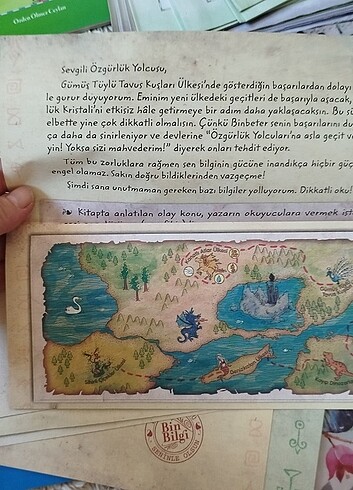 Özden Olmez Ceylan
Sevgili Özgürlük Yolcusu,
Gümüş Tüylü Tavus Kuşları Ülkesi'nde gösterdiğin başarılardan dolayı
le gurur duyuyorum. Eminim yeni ülkedeki geçitleri de başarıyla aşacak,
lük Kristali'ni etkisiz hâle getirmeye bir adım daha yaklaşacaksın. Bu sü
elbette yine çok dikkatli olmalısın. Çünkü Binbeter senin başarılarını du
ça daha da sinirleniyor ve devlerine "Özgürlük Yolcuları'na asla geçit v
yin! Yoksa sizi mahvederim!" diyerek onları tehdit ediyor.
Tüm bu zorluklara rağmen sen bilginin gücüne inandıkça hiçbir güç
engel olamaz. Sakın doğru bildiklerinden vazgeçme!
Şimdi sana unutmaman gereken bazı bilgiler yolluyorum. Dikkatli oku!
Kitapta anlatılan olay konu, yazarın okuyuculara vermek ist
Bin
Bilgi
SENİNLE OLSUN